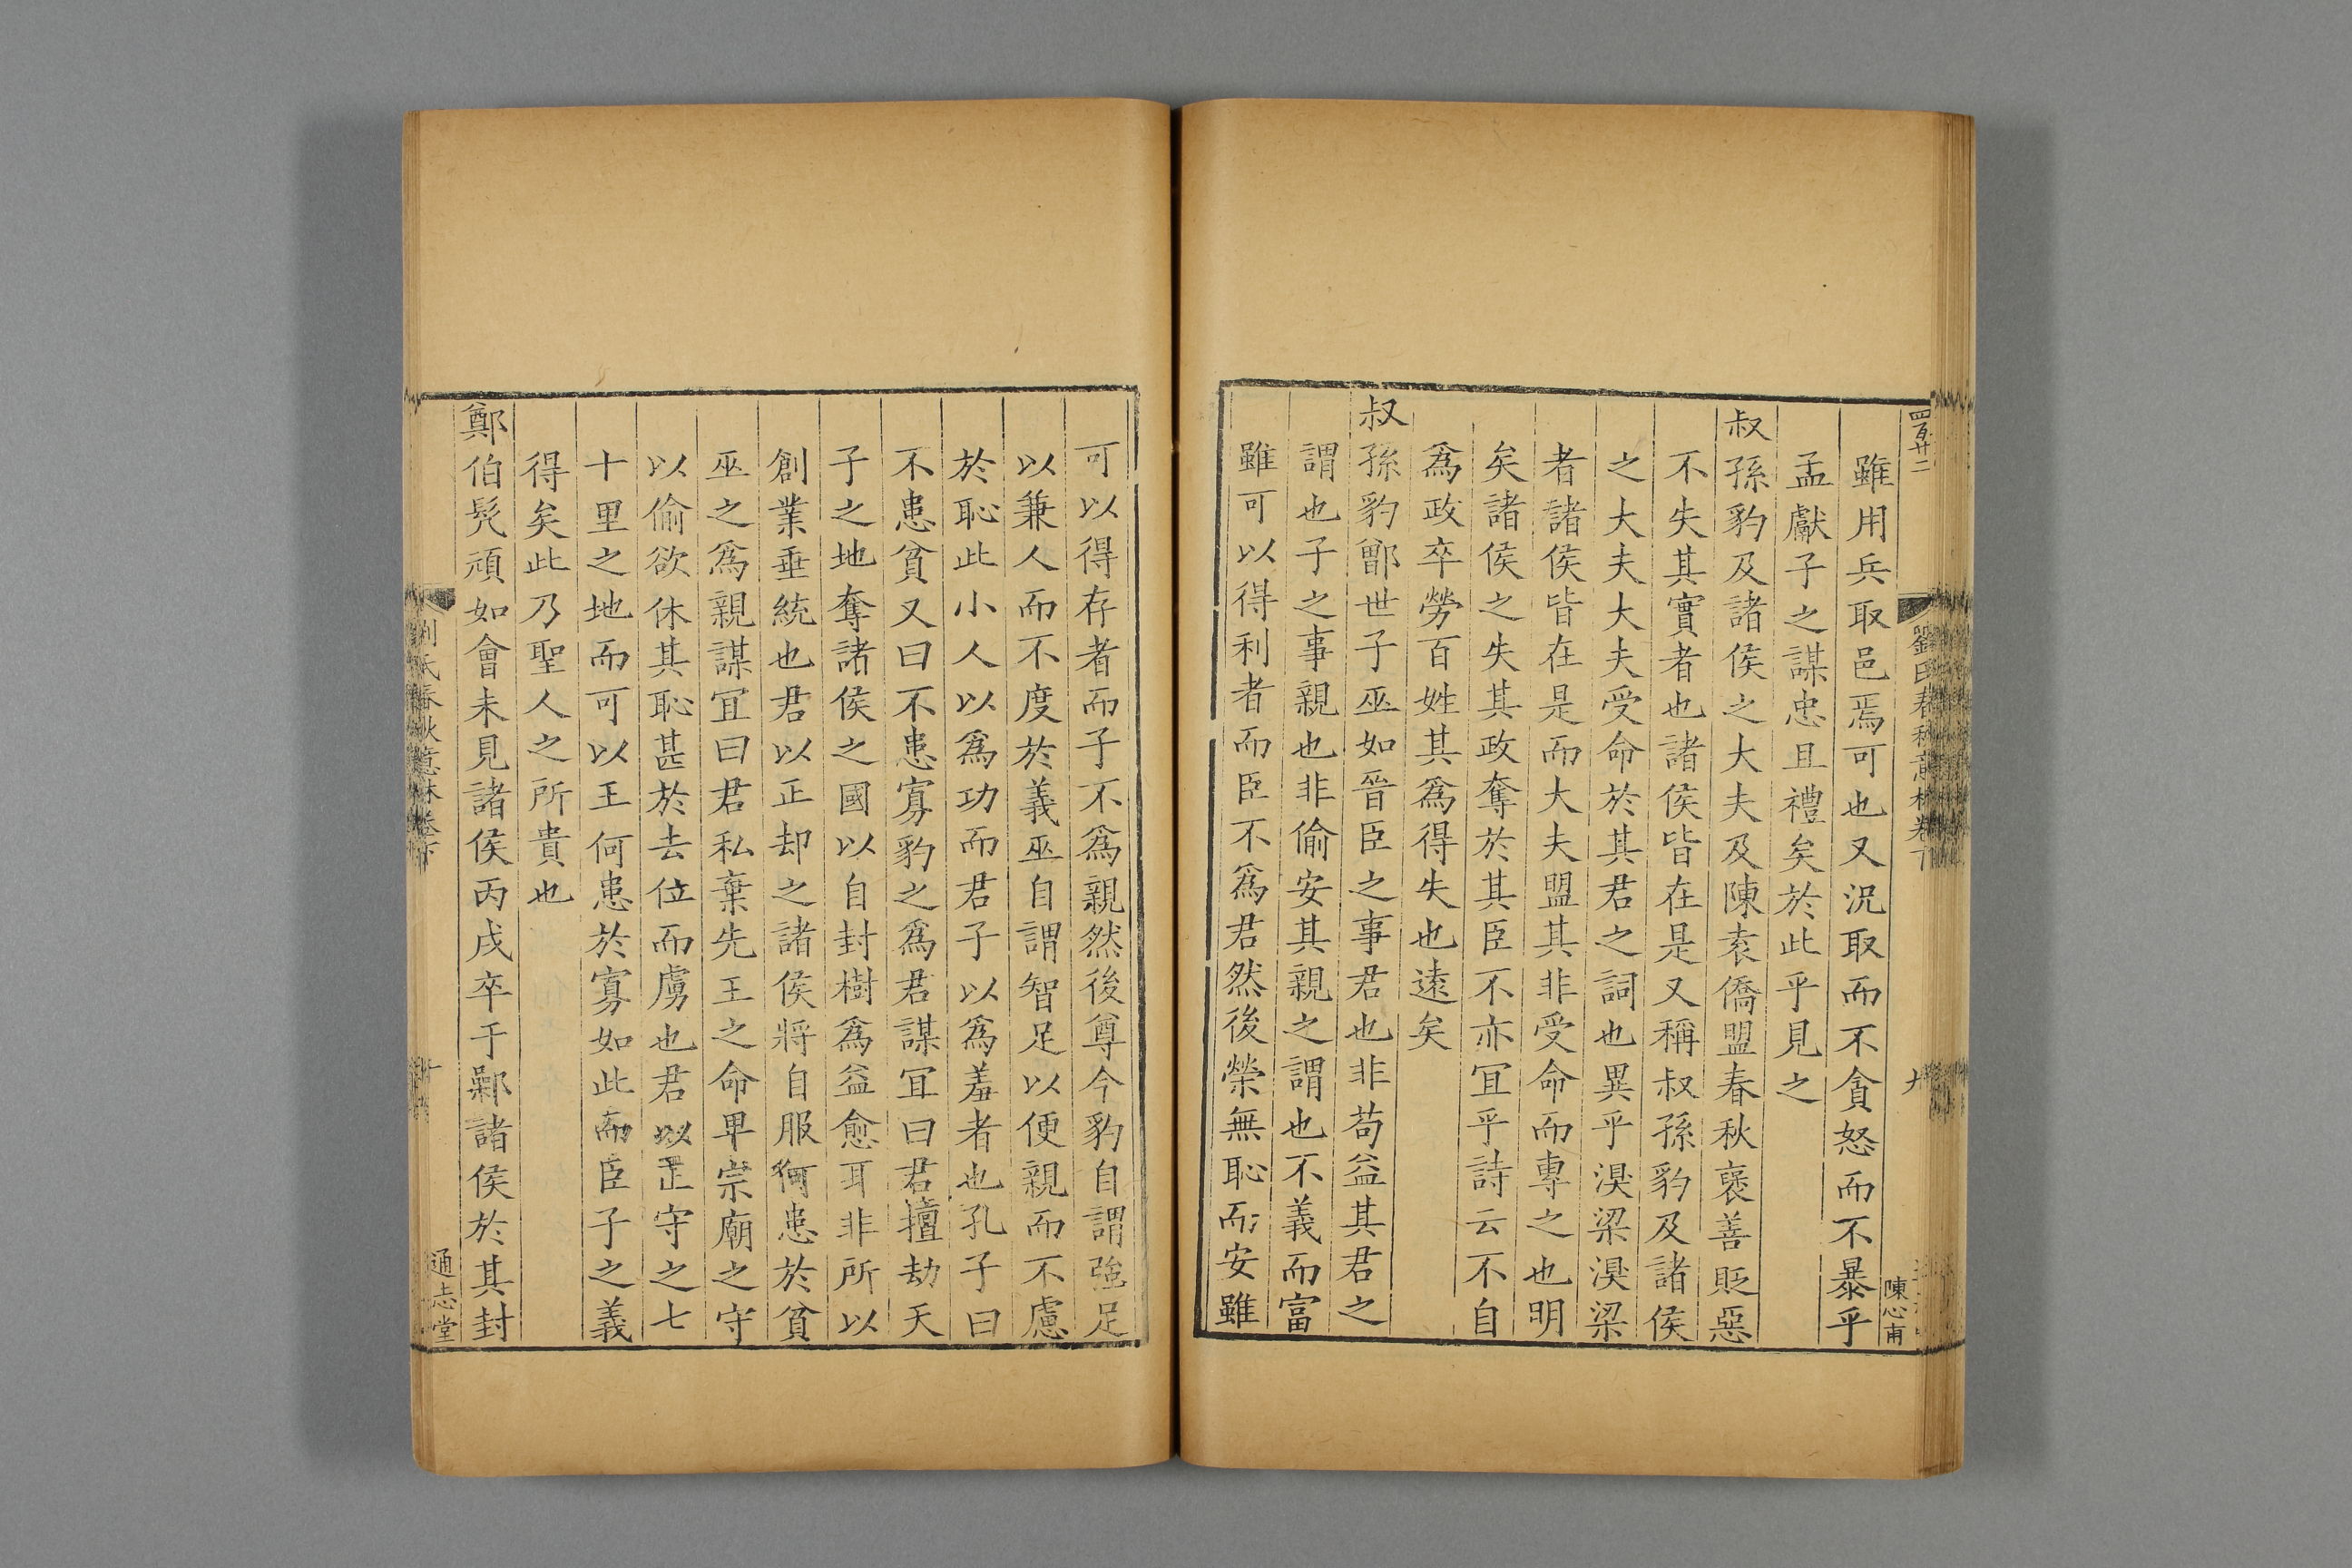 雖用兵取邑焉可也又況取而不貪怒而不暴乎
孟獻子之謀忠且禮矣於此乎見之
叔孫豹及諸侯之大夫及陳袁僑盟春秋襃善貶惡
不失其實者也諸侯皆在是又稱叔孫豹及諸侯
之大夫大夫受命於其君之詞也異乎湨梁湨梁
者諸侯皆在是而大夫盟其非受命而專之也明
矣諸侯之失其政奪於其臣不亦冝乎詩云不自
爲政卒勞百姓其爲得失也遠矣
叔孫豹鄫世子巫如晉臣之事君也非苟益其君之
謂也子之事親也非偷安其親之謂也不義而富
雖可以得利者而臣不爲君然後榮無恥而安雖
可以得存者而子不爲親然後尊今豹自謂強足
以兼人而不度於義巫自謂智足以便親而不慮
於恥此小人以爲功而君子以爲羞者也孔子曰
不患貧又曰不患寡豹之爲君謀冝曰君擅劫天
子之地奪諸侯之國以自封樹爲益愈耳非所以
創業垂統也君以正却之諸侯將自服何患於貧
巫之爲親謀冝曰君私棄先王之命卑宗廟之守
以偷欲休其恥甚於去位而虜也君以正守之七
十里之地而可以王何患於寡如此而臣子之義
得矣此乃聖人之所貴也
鄭伯髡頑如會未見諸侯丙戌卒于鄵諸侯於其封
劉氏春秋意林卷下
九
陳心甫
劉氏春秋意林卷下
十
通志堂